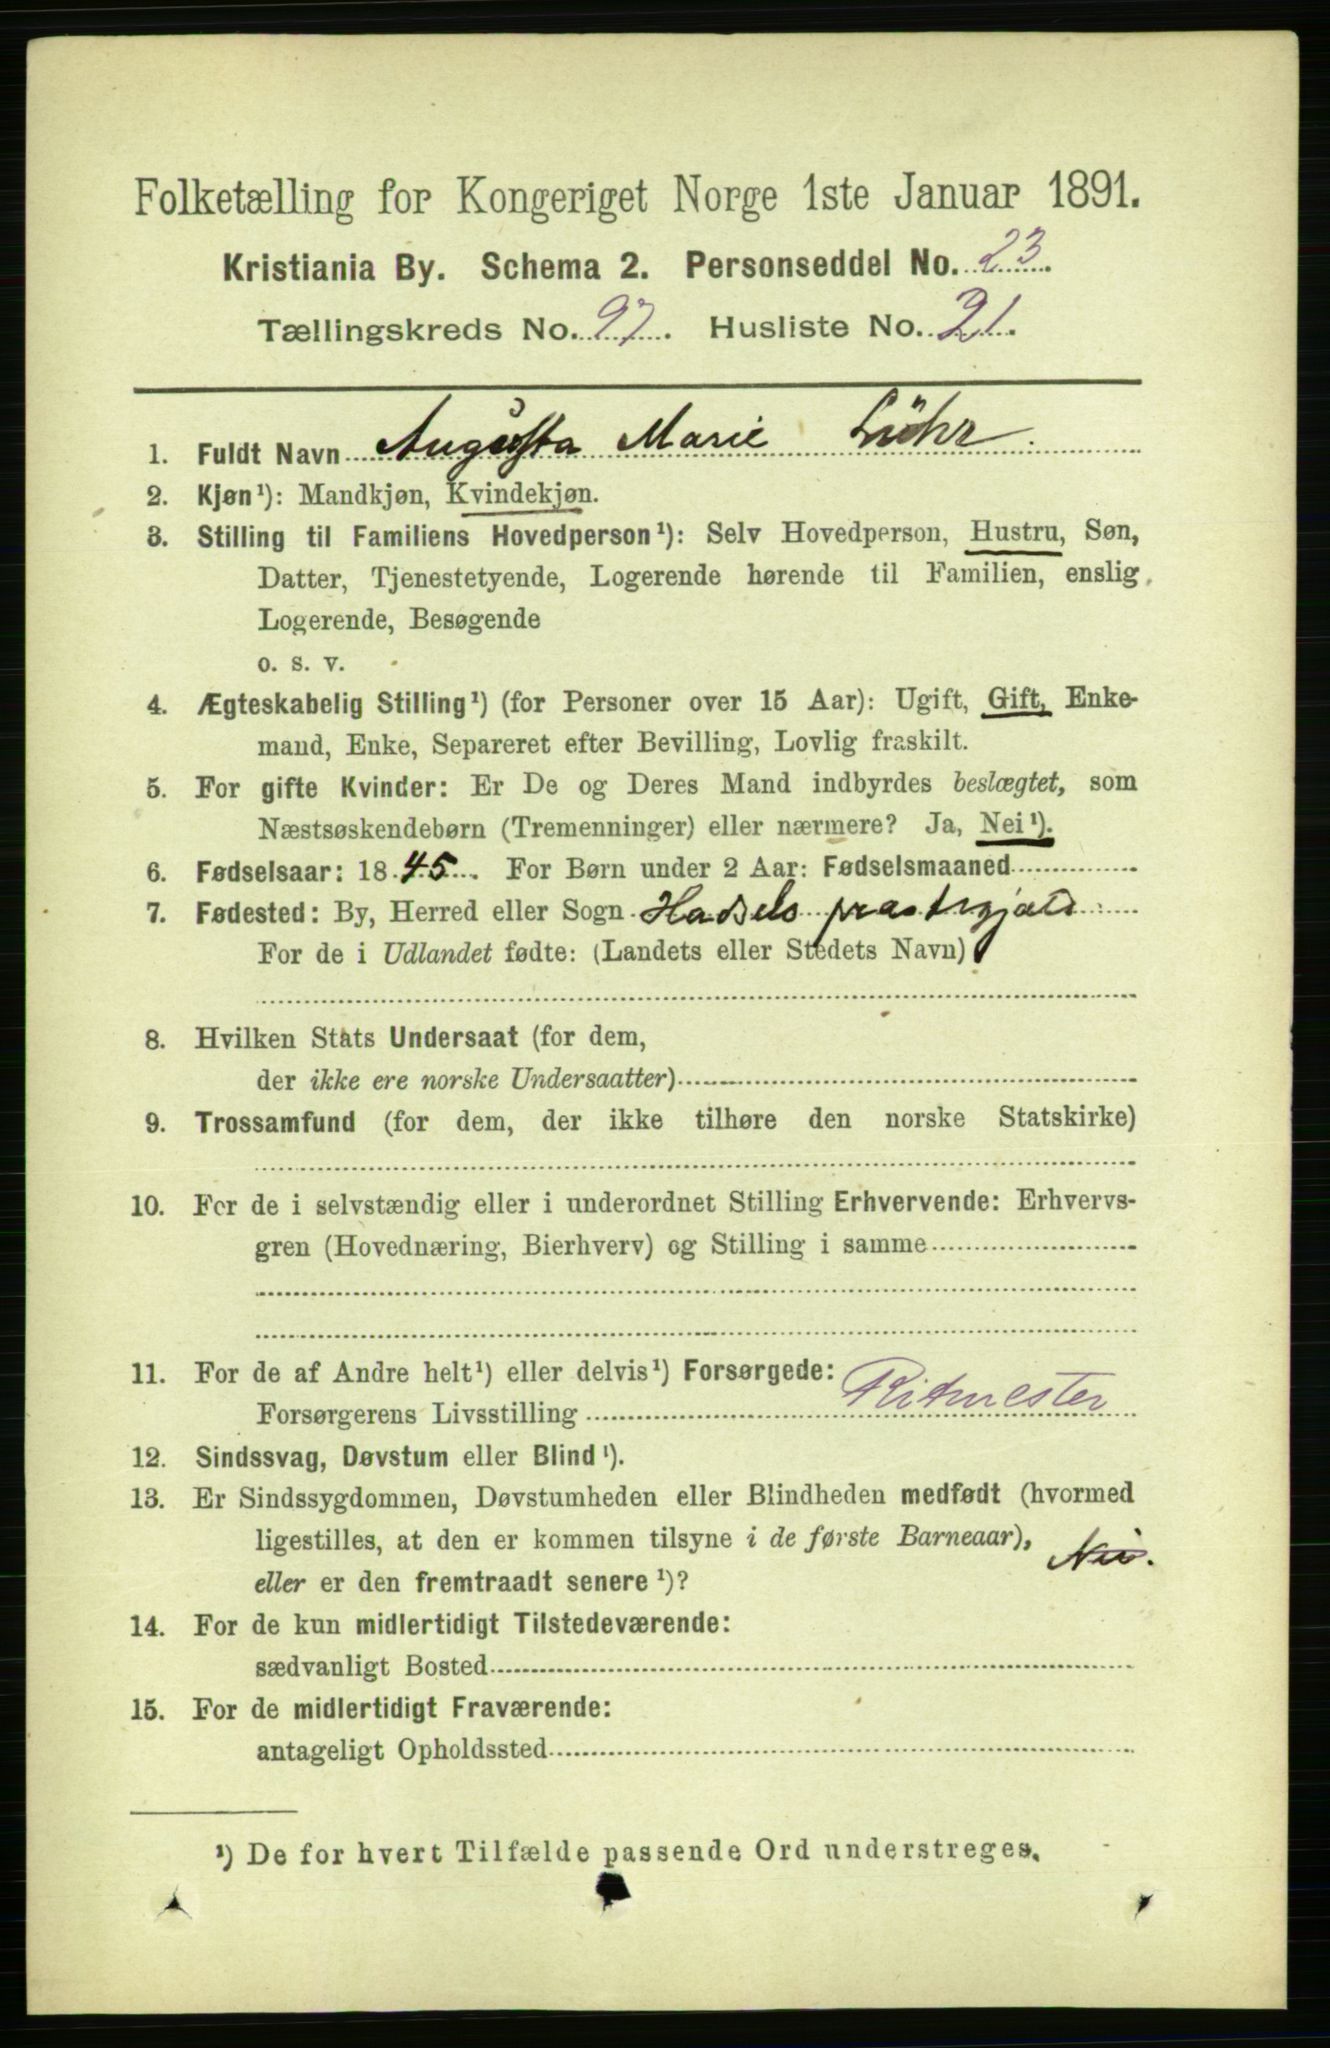 Folketælling for Kongeriget Norge 1ste Januar 1891.
Kristiania By. Schema 2. Personseddel No. 23.
Tællingskreds No. 97. Husliste No. 21.
1. Fuldt Navn Augusta Marie Lühr.
2. Kjøn¹): Mandkjøn, Kvindekjøn.
3. Stilling til Familiens Hovedperson¹): Selv Hovedperson, Hustru, Søn,
Datter, Tjenestetyende, Logerende hørende til Familien, enslig
Logerende, Besøgende
o. s. v.
4. Ægteskabelig Stilling¹) (for Personer over 15 Aar): Ugift, Gift, Enke-
mand, Enke, Separeret efter Bevilling, Lovlig fraskilt.
5. For gifte Kvinder: Er De og Deres Mand indbyrdes beslægtet, som
Næstsøskendebørn (Tremenninger) eller nærmere? Ja, Nei¹).
6. Fødselsaar: 1845. For Børn under 2 Aar: Fødselsmaaned
7. Fødested: By, Herred eller Sogn Hadsels præstegjæld
For de i Udlandet fødte: (Landets eller Stedets Navn)
8. Hvilken Stats Undersaat (for dem,
der ikke ere norske Undersaatter)
9. Trossamfund (for dem, der ikke tilhøre den norske Statskirke)
10. For de i selvstændig eller i underordnet Stilling Erhvervende: Erhvervs-
gren (Hovednæring, Bierhverv) og Stilling i samme
11. For de af Andre helt¹) eller delvis¹) Forsørgede:
Forsørgerens Livsstilling Ritmester
12. Sindssvag, Døvstum eller Blind¹).
13. Er Sindssygdommen, Døvstumheden eller Blindheden medfødt (hvormed
ligestilles, at den er kommen tilsyne i de første Barneaar), Nei.
eller er den fremtraadt senere¹)?
14. For de kun midlertidigt Tilstedeværende:
sædvanligt Bosted
15. For de midlertidigt Fraværende:
antageligt Opholdssted
¹) De for hvert Tilfælde passende Ord understreges.